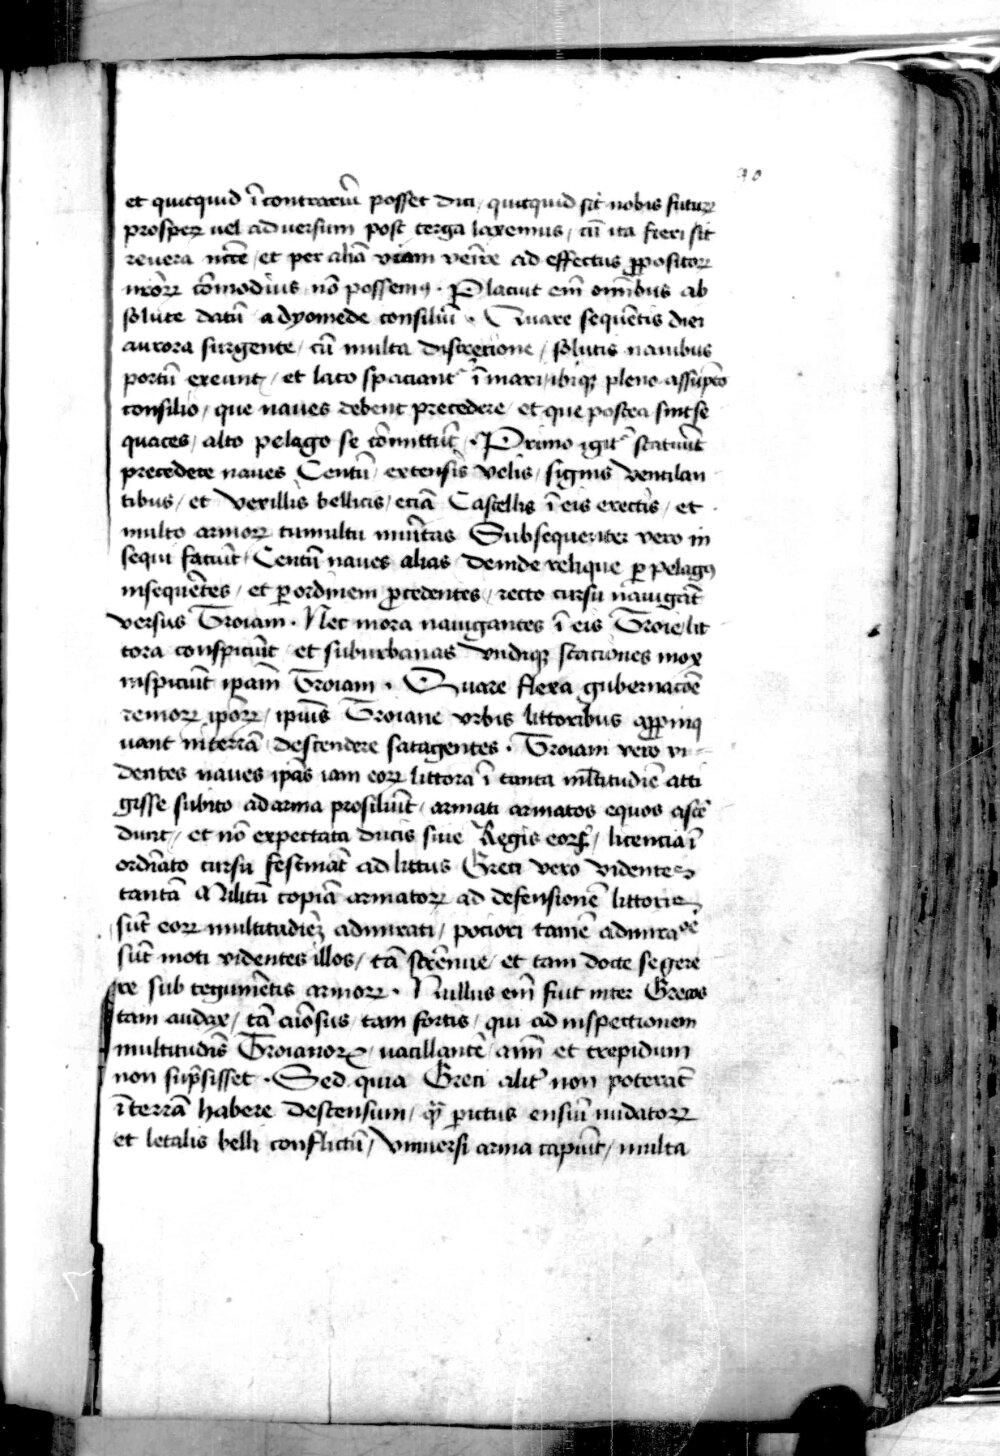 90
et quitquid ĩ contrariũ posset dici / quitquid sit nobis futuꝝ
prosperꝝ uel aduersum post terga laxemus / cũ ita fieri sit
reuera nc̃ce / et per aliã viam venĩre ad effectus ꝓpositoꝝ
nr̃oꝝ cõmodius nõ possemꝯ · Placuit eni᷒ om̃ibus ab
solute datũ a dyomede consiliũ · Quare sequẽtis diei
aurora surgente / cũ multa discrecione / solutis nauibus
portũ exeunt / et lato spaciantʳ ĩ mari / ibiqꝫ pleno assũpto
consilio / que naues debent precedere / et que postea sint se
quaces / alto pelago se cõmittũt · Primo igitʳ statuũt
precedere naues Centũ / extensis velis / signis ventilan
tibus / et vexillis bellicis / eciã Castellis ĩ eis erectis / et
multo armoꝝ tumultu munĩtas Subsequenter vero in
sequi faciũt / Centũ naues alias deinde relique ꝑ pelagꝯ
insequẽtes / et ꝑ ordinem ꝓcedentes / recto cursu nauigãt
versus Troiam · Nec mora nauigantes ĩ eis Troie lit
tora conspiciũt et suburbanas vndiqꝫ staciones mox
inspiciũt ipam̃ Troiam · Quare flexa gubernacõe
remoꝝ ip̃oꝝ / ipiũs Troiane vrbis littoribus aꝓpinq
uant in terrã descendere satagentes · Troiani vero vi
dentes naues ipãs iam eoꝝ littora ĩ tanta ml̃titudiẽ atti
gisse subito ad arma prosiliũt / armati armatos equos ascẽ
dunt / et nõ expectata ducis siue Regis eoꝝ / licencia ĩ
ordiñato cursu festinãt ad littus Greci vero videntes
tantã Militũ copiã armatoꝝ ad defensionẽ littoris
sũt eoꝝ multitudiẽꝫ admirati / pociori tamẽ admiracõe
sũt moti videntes illos / tã strẽnue / et tam docte se gere
re sub tegumẽtis armoꝝ · Nullus em̃ fuit inter Grecos
tam audax / tã aiõsus / tam fortis / qui ad inspectionem
multitudis̃ Troianoꝝ / vacillantẽ / aim̃ et trepidum
non sup̃sisset · Sed quia Greci alitʳ non poterãt
ĩ terrã habere descensum / qᷓ ꝑ ictus ensiũ nudatoꝝ
et letalis belli conflictũ / vniuersi arma capiũt / multa